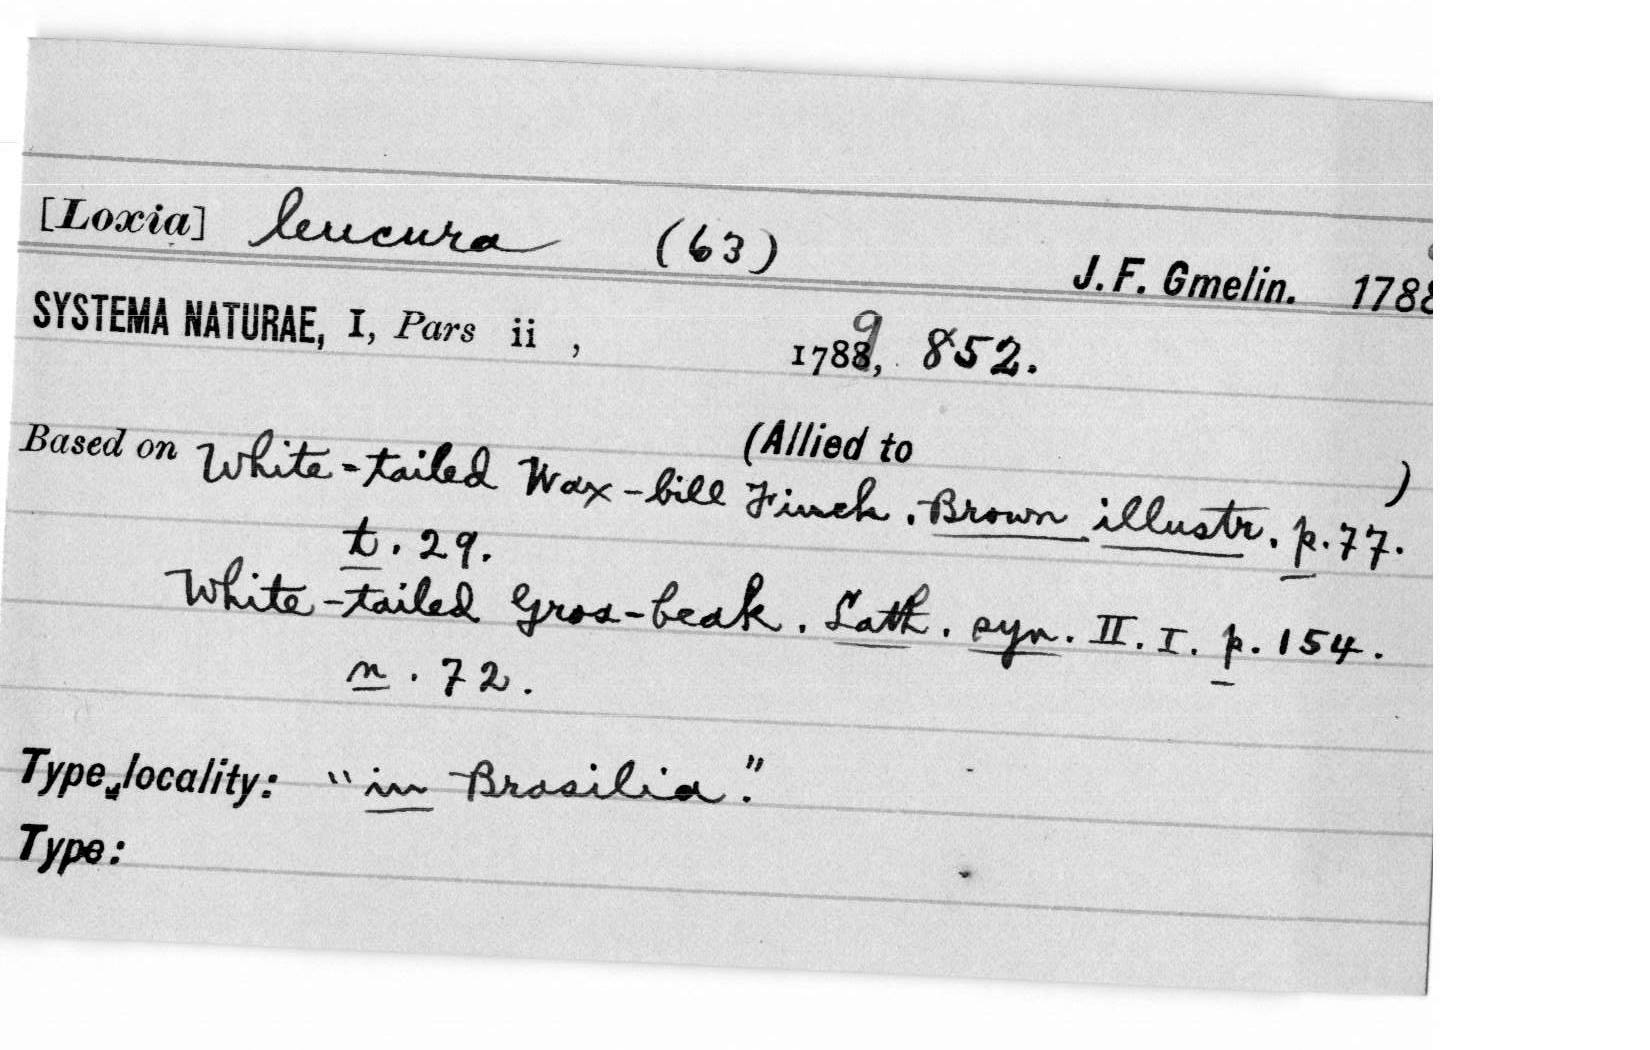 [Loxia] leucura (63) J. F. Gmelin. 1788
SYSTEMA NATURAE, I, Pars ii , 1789, 852.
Based on White-tailed Wax-bill Finch. Brown illustr. p. 77. (Allied to )
t. 29.
White-tailed Gros-beak. Lath. syn. II. I. p. 154.
n. 72.
Type locality: "in Brasilia."
Type: